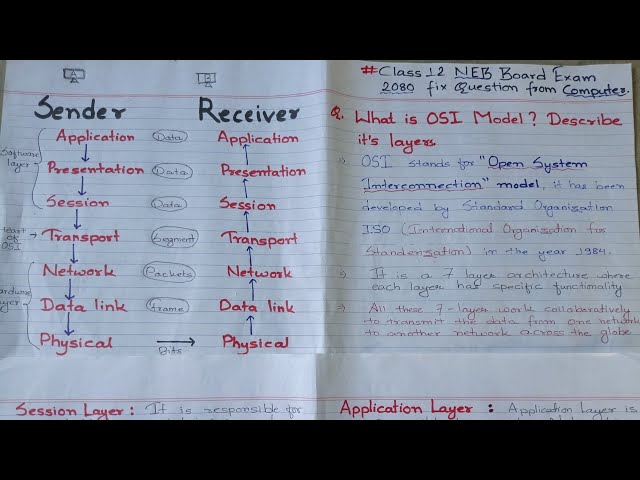 A
B
Sender Receiver
Application Data Application
Software
layer
Presentation Data Presentation
Session Data Session
Heart
of
OSI
Transport Segment Transport
Network Packets Network
Data link frame Data link
layer
Physical Bits Physical
#Class 12 NEB Board Exam
2080 fix Question from Computer.
Q. What is OSI Model? Describe
it's layers
OSI stands for "Open System
Interconnection" model, it has been
developed by Standard Organisation
ISO (International Organisation for
Standensation) in the year 1984.
It is a 7 layer architecture where
each layer has specific functionality
All these 7-layer work collaboratively
to transmit the data from one network
to another network across the globe
Session Layer: It is responsible for
Application Layer : Application layer is